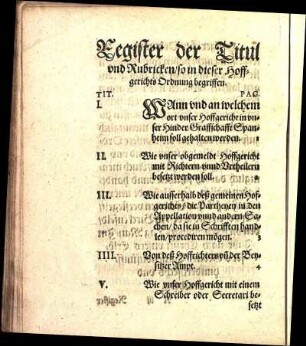 Register der Titul
vnd Rubricken/ so in dieser Hoff-
gerichts Ordnung begriffen.
TIT. PAG.
I. WAnn vnd an welchem
ort vnser Hoffgericht in vn-
ser Hinder Graffschafft Span-
heim soll gehalten werden.
II. Wie vnser obgemelt Hoffgericht
mit Richtern vnnd Vrtheilern
besetzt werden soll.
III. Wie ausserhalb deß gemeinen Hof-
gerichts/ die Partheyen in den
Appellation vnnd andern Sa-
chen/ da sie in Schrifften hand-
len/ procediren mögen. 3
IIII. Von deß Hoffrichters vñ der Bey-
sitzer Ampt. 4
V. Wie vnser Hoffgericht mit einem
Schreiber oder Secretari be-
setzt